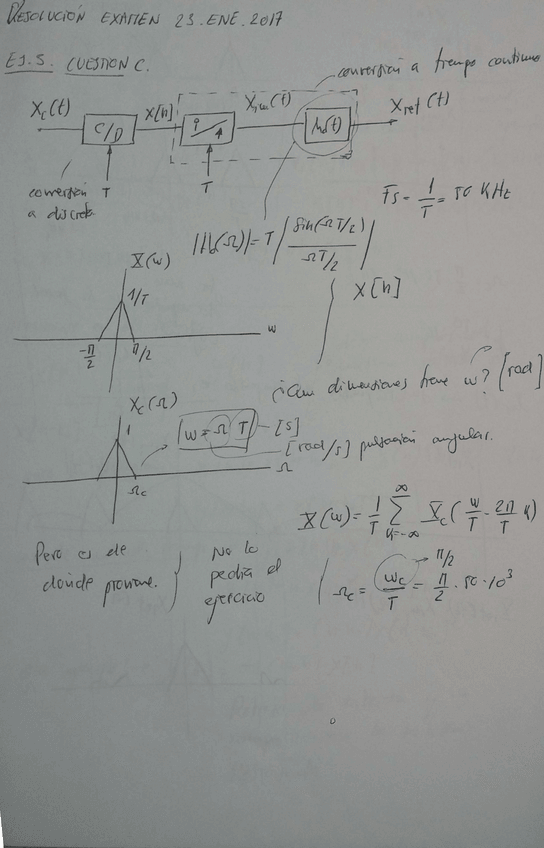 RESOLUCIÓN EXAMEN 23.ENE.2017
EJ.5. CUESTION C.
conversión a tiempo continuo
Xc(t) C/D X[n] Xim(t) h0(t) Xret(t)
T T
conversión a discreta
Fs = 1/T = 50 KHz
|H0(Ω)| = T | sin(ΩT/2) / ΩT/2 |
X[n]
X(w)
1/T
-π/2 π/2 w
¿Qué dimensiones tiene w? [rad]
Xc(Ω)
1
w = Ω T [s]
[rad/s] pulsación angular.
Ωc Ω
X(w) = 1/T ∑ k=-∞ ∞ Xc( w/T - 2π/T k)
Pero es de
donde proviene.
No lo
pedía el
ejercicio
Ωc = wc/T = π/2 · 50 · 10³
π/2